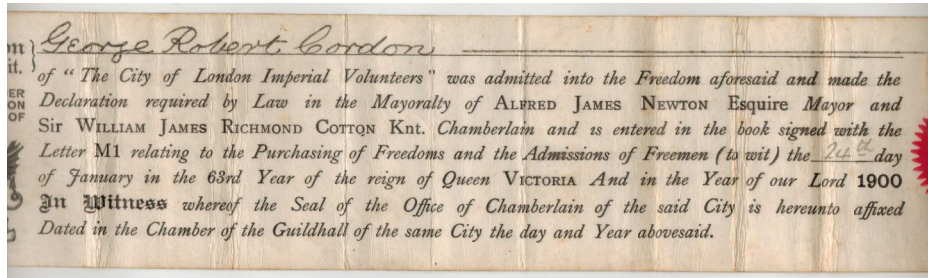 George Robert Cordon
of "The City of London Imperial Volunteers" was admitted into the Freedom aforesaid and made the
Declaration required by Law in the Mayoralty of ALFRED JAMES NEWTON Esquire Mayor and
Sir WILLIAM JAMES RICHMOND COTTON Knt. Chamberlain and is entered in the book signed with the
Letter M1 relating to the Purchasing of Freedoms and the Admissions of Freemen (to wit) the 24th day
of January in the 63rd Year of the reign of Queen VICTORIA And in the Year of our Lord 1900
In Witness whereof the Seal of the Office of Chamberlain of the said City is hereunto affixed
Dated in the Chamber of the Guildhall of the same City the day and Year abovesaid.